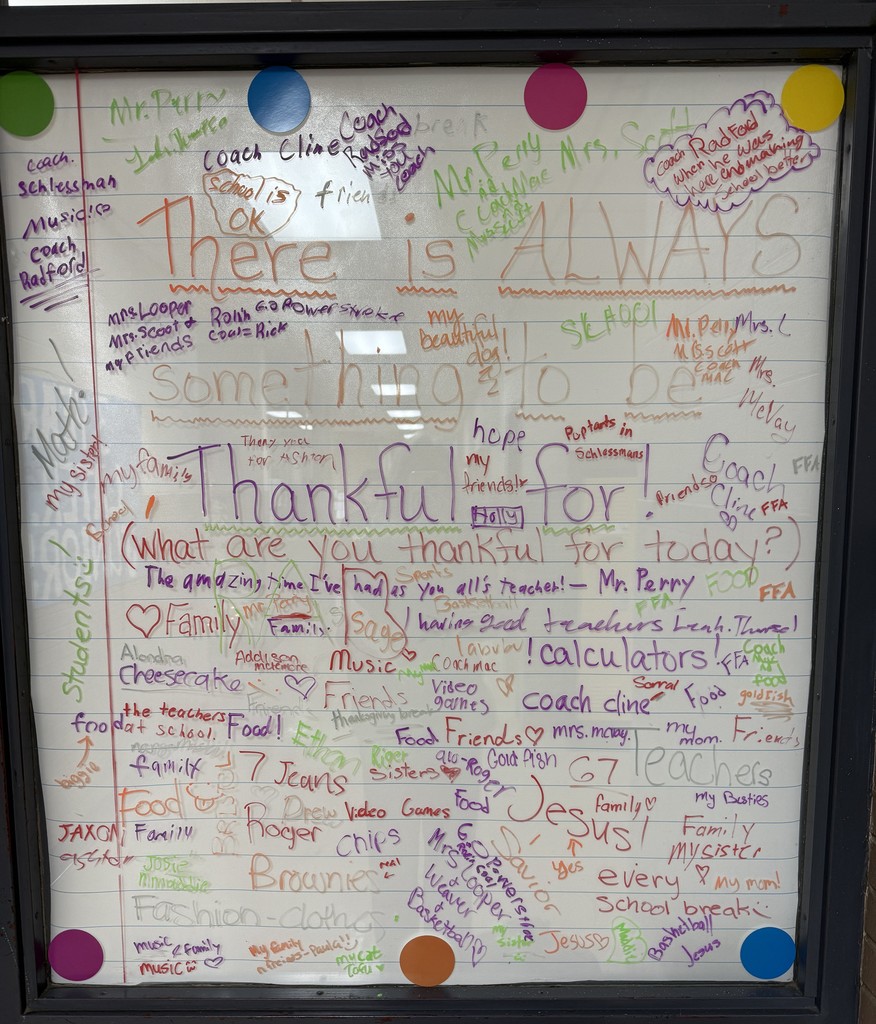 Mr. Perry
Coach Cline
Coach
Radford
Miss
you
Coach
break
Mr. Perry
Mrs. Scott
Coach Radford
when he was
here and making
school better
Coach.
Schlessman
Music!
Coach
Radford
School is
OK
frien
There is ALWAYS
Mrs. Looper
Mrs. Scoot &
my friends
my
beautiful
dog!
Mr. Perry
Ms. Scott
Coach
Mac
Mrs. L
Mrs.
McVay
something to be
Math!
my sister!
my family
Thank you
for
hope
my
friends!
Poptarts in
Schlessmans
Holly
Thankful for!
Friends
Coach
Cline
FFA
FFA
School
(What are you thankful for today?)
The amazing time I've had as you all's teacher! - Mr. Perry
Sports
FOOD
FFA
Students!
♡ Family
Mr. Perry
Family
Sage
Basketball
FFA
having good teachers
Alondra
Cheesecake
Addison
Music
Coach mac
! calculators!
FFA
Coach
food
goldfish
Friends
Video
games
coach cline
Food
food
the teachers
at school.
Food!
Thanksgiving break
Ethan
Food
Friends ♡
mrs. mcvay.
my
mom.
Friends
family
7 Jeans
Riger
Sisters
Gold fish
67
Teachers
Food
Drew
Video Games
Food
Jesus!
family ♡
my Besties
JAXON
Family
Roger
Chips
Family
my sister
Josie
Brownies
Mrs Looper
Weaver
&
Basketball
Savior
yes
every ♡
school break
My mom!
Fashion-clothes
music
& Family
music ♡
My family
my cat
Tofu
my
Sister
Jesus ♡
Maddie
Basketball
Jesus